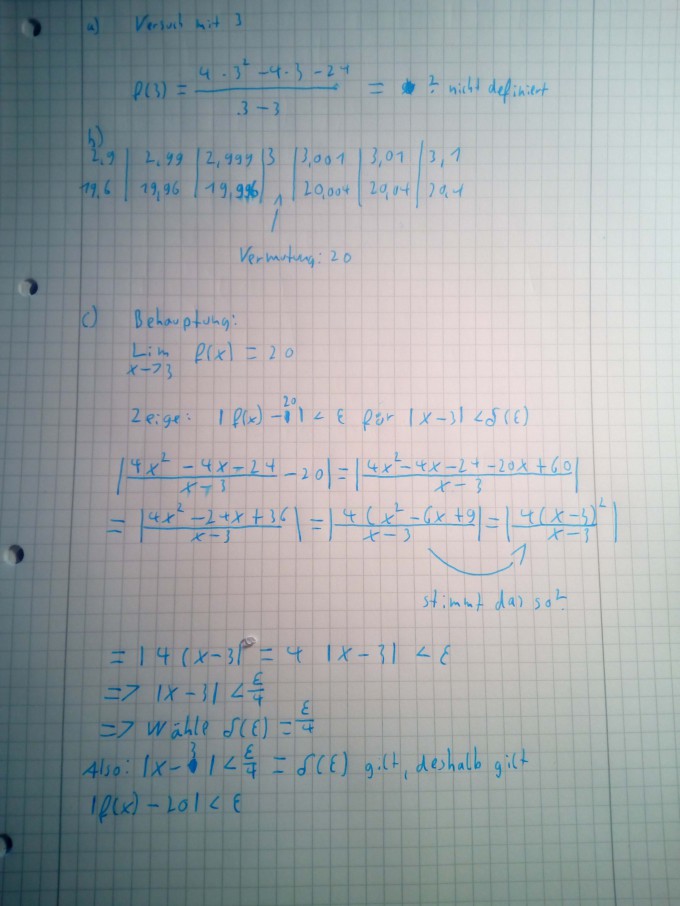 a) Versuch mit 3
f(3) = (4 · 3² - 4 · 3 - 24) / (3 - 3) = ? nicht definiert
b)
2,9 | 2,99 | 2,999 | 3 | 3,001 | 3,01 | 3,1
19,6 | 19,96 | 19,996 | | 20,004 | 20,04 | 20,4
Vermutung: 20
c) Behauptung:
Lim f(x) = 20
x->3
Zeige: |f(x) - 20| < ε für |x-3| < δ(ε)
|(4x² - 4x - 24)/(x-3) - 20| = |(4x² - 4x - 24 - 20x + 60)/(x-3)|
= |(4x² - 24x + 36)/(x-3)| = |4(x² - 6x + 9)/(x-3)| = |4(x-3)²/(x-3)|
stimmt das so?
= |4(x-3)| = 4 |x-3| < ε
=> |x-3| < ε/4
=> Wähle δ(ε) = ε/4
Also: |x-3| < ε/4 = δ(ε) gilt, deshalb gilt
|f(x) - 20| < ε